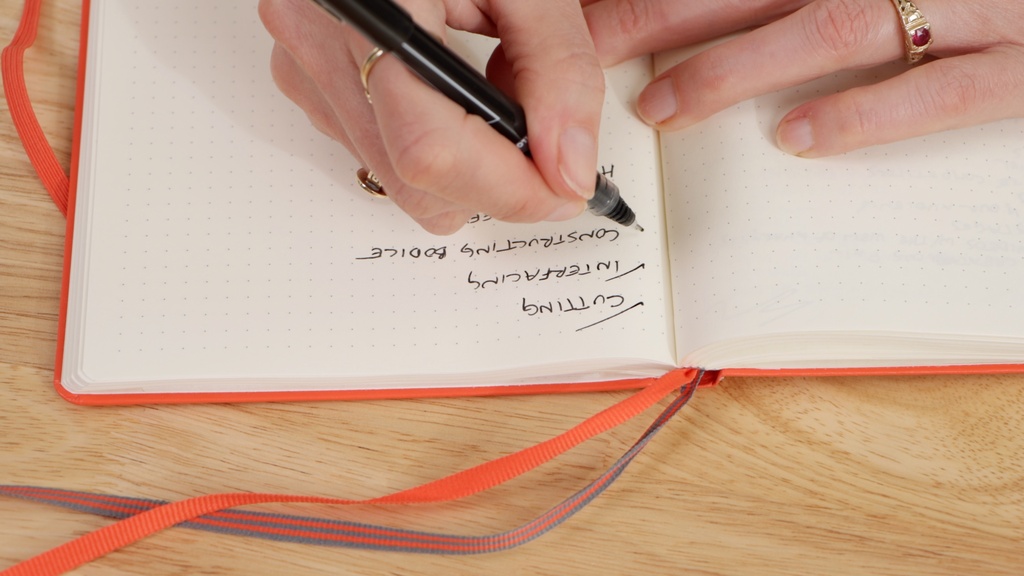 ✓ CUTTING
✓ INTERFACING
CONSTRUCTING BODICE